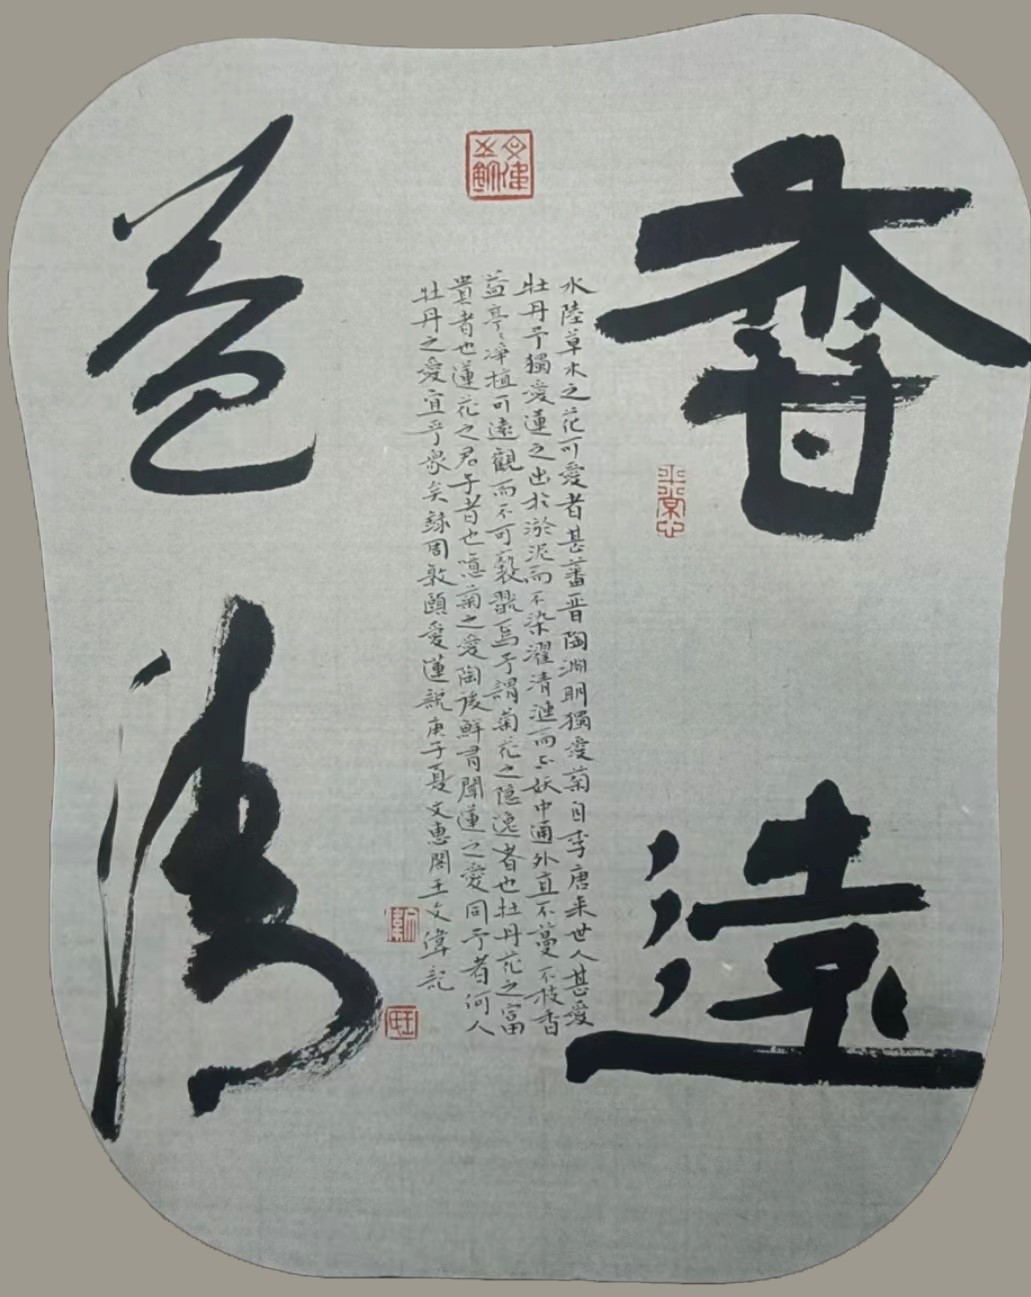 香遠
平常心
水陸草木之花可愛者甚蕃晋陶淵明獨愛菊自李唐来世人甚愛
牡丹予獨愛蓮之出於淤泥而不染濯清漣而不妖中通外直不蔓不枝香
益亭々净植可遠觀而不可褻翫焉予謂菊花之隐逸者也牡丹花之富
貴者也蓮花之君子者也噫菊之愛陶後鮮有聞蓮之愛同予者何人
牡丹之愛宜乎衆矣錄周敦頤愛蓮説庚子夏文惠閣王文偉記
益清